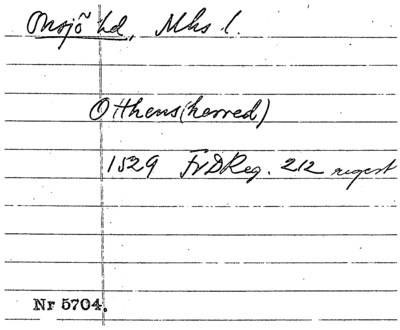 Onsjö hd, Mhs l.
Otthens(herred)
1529 FrDReg. 212 regest
Nr 5704.